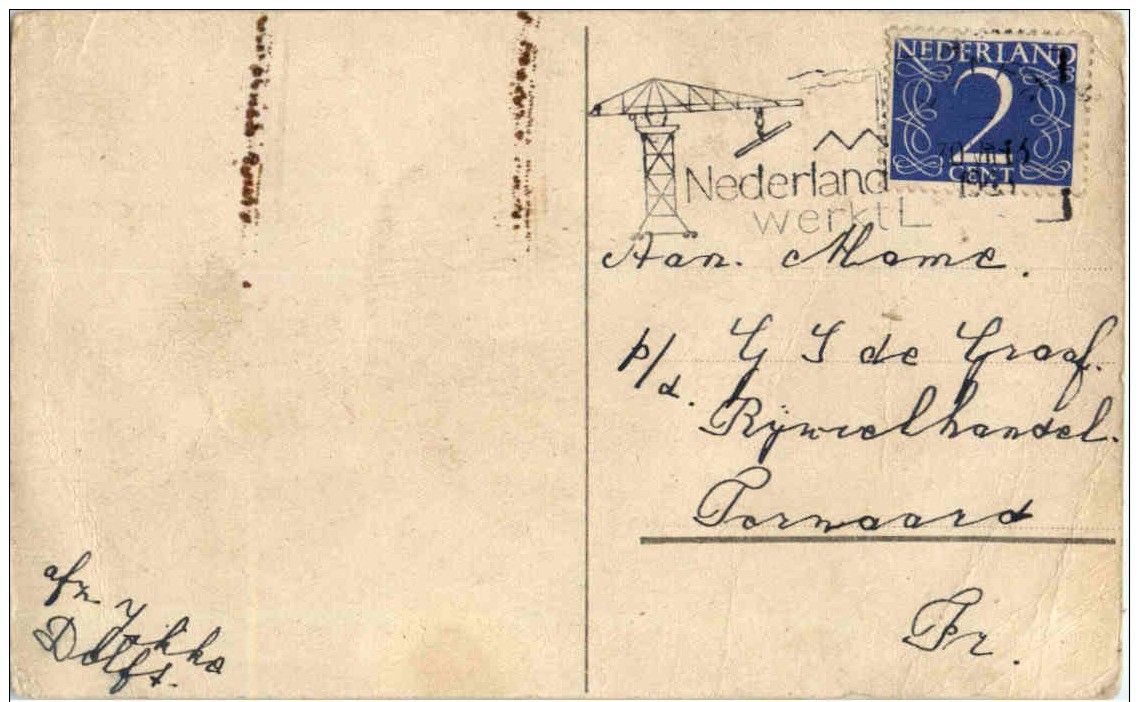 NEDERLAND
2
CENT
Nederland
werkt
Aan. Mome.
p/a. G J de Graaf.
Rijwielhandel.
Ternaard
Fr.
afz. Jokke
Delft.